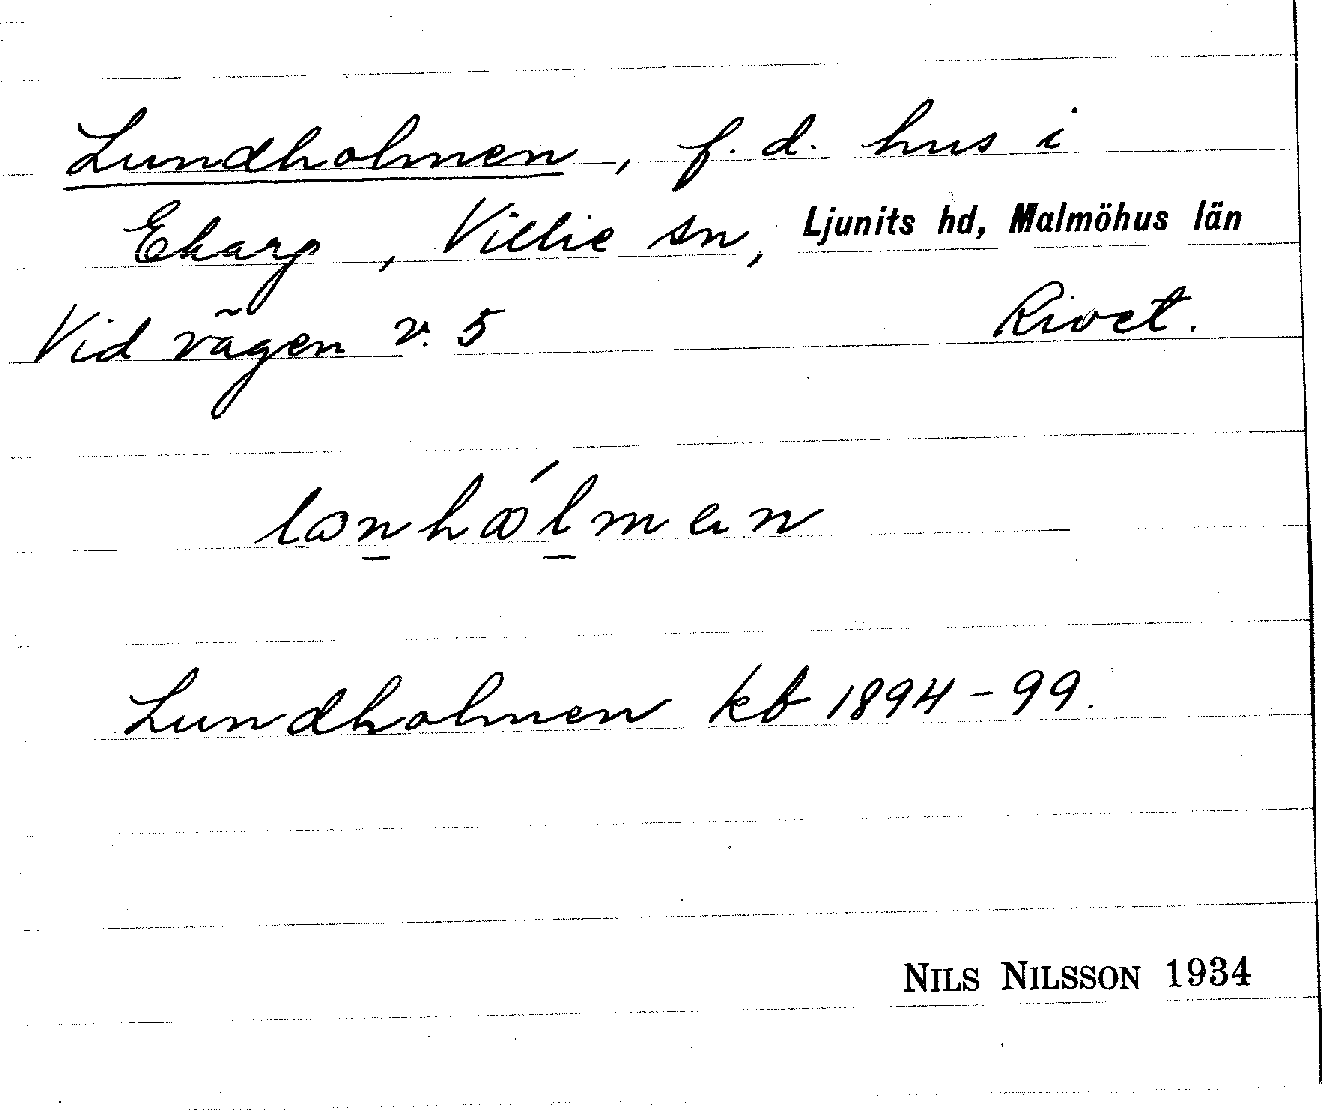 Lundholmen, f.d. hus i
Ekarp, Villie sn, Ljunits hd, Malmöhus län
Vid vägen v. 5 Rivet.
Lundholmen kb 1894-99.
NILS NILSSON 1934